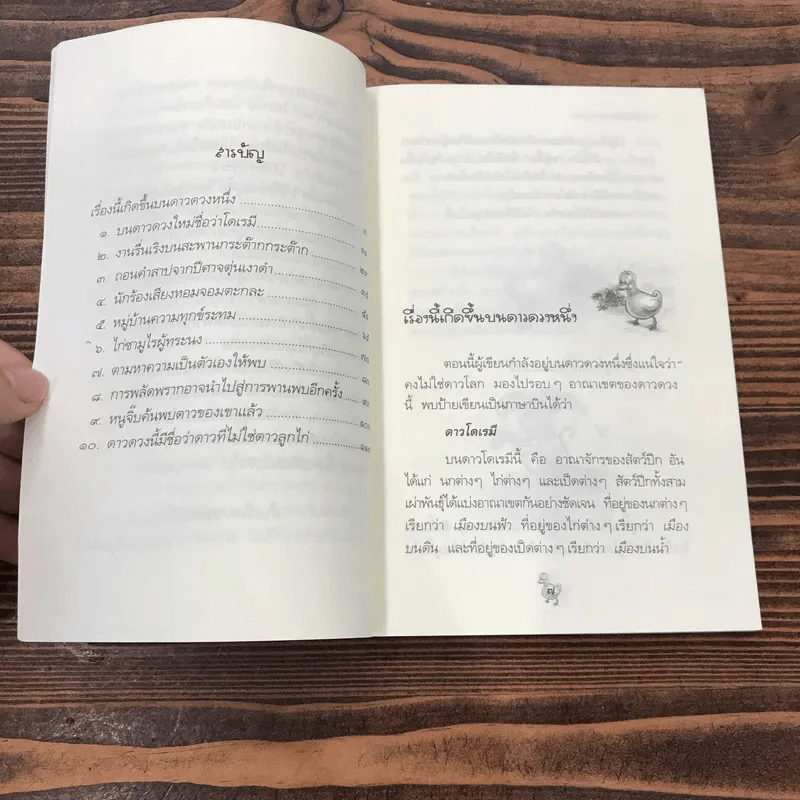 สารบัญ
เรื่องนี้เกิดขึ้นบนดาวดวงหนึ่ง
๑. บนดาวดวงใหม่ชื่อว่าโดเรมี
๒. งานรื่นเริงบนสะพานกระต๊ากกระต๊าก
๓. ถอนคำสาปจากปีศาจตุ่นเงาดำ
๔. นักร้องเสียงหอมจอมตะกละ
๕. หมู่บ้านความทุกข์ระทม
๖. ไก่ซามูไรผู้ทระนง
๗. ตามหาความเป็นตัวเองให้พบ
๘. การพลัดพรากอาจนำไปสู่การพานพบอีกครั้ง
๙. หนูจิ๊บค้นพบดาวของเขาแล้ว
๑๐. ดาวดวงนี้มีชื่อว่าดาวที่ไม่ใช่ดาวลูกไก่
เรื่องนี้เกิดขึ้นบนดาวดวงหนึ่ง
ตอนนี้ผู้เขียนกำลังอยู่บนดาวดวงหนึ่งซึ่งแน่ใจว่า
คงไม่ใช่ดาวโลก มองไปรอบๆ อาณาเขตของดาวดวง
นี้ พบป้ายเขียนเป็นภาษาบินได้ว่า
ดาวโดเรมี
บนดาวโดเรมีนี้ คือ อาณาจักรของสัตว์ปีก อัน
ได้แก่ นกต่างๆ ไก่ต่างๆ และเป็ดต่างๆ สัตว์ปีกทั้งสาม
เผ่าพันธุ์ได้แบ่งอาณาเขตกันอย่างชัดเจน ที่อยู่ของนกต่างๆ
เรียกว่า เมืองบนฟ้า ที่อยู่ของไก่ต่างๆ เรียกว่า เมือง
บนดิน และที่อยู่ของเป็ดต่างๆ เรียกว่า เมืองบนน้ำ
๗